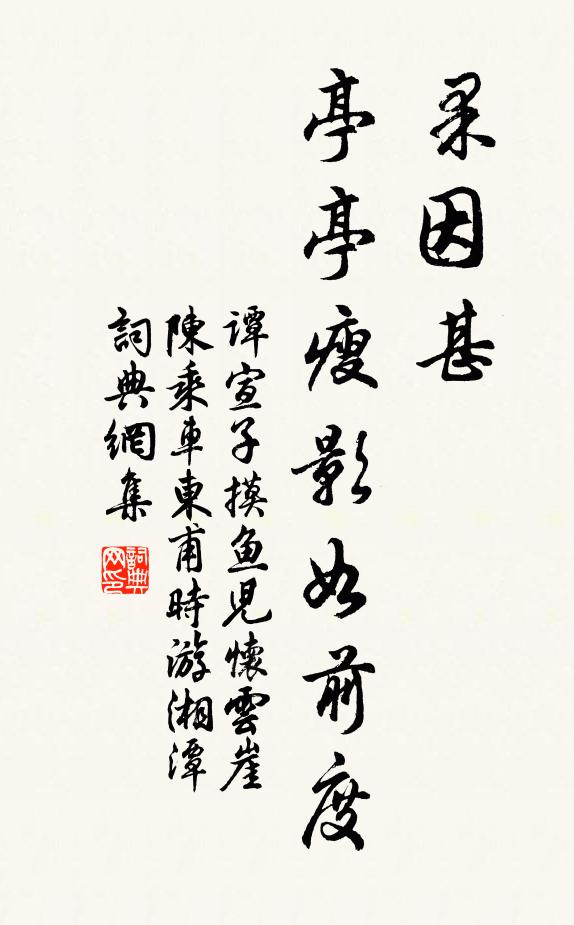 因甚
亭亭瘦影如前度
譚宣子摸鱼児懷雲崖
陳乘車東甫時游湘潭
詞典網集
詞典
网印